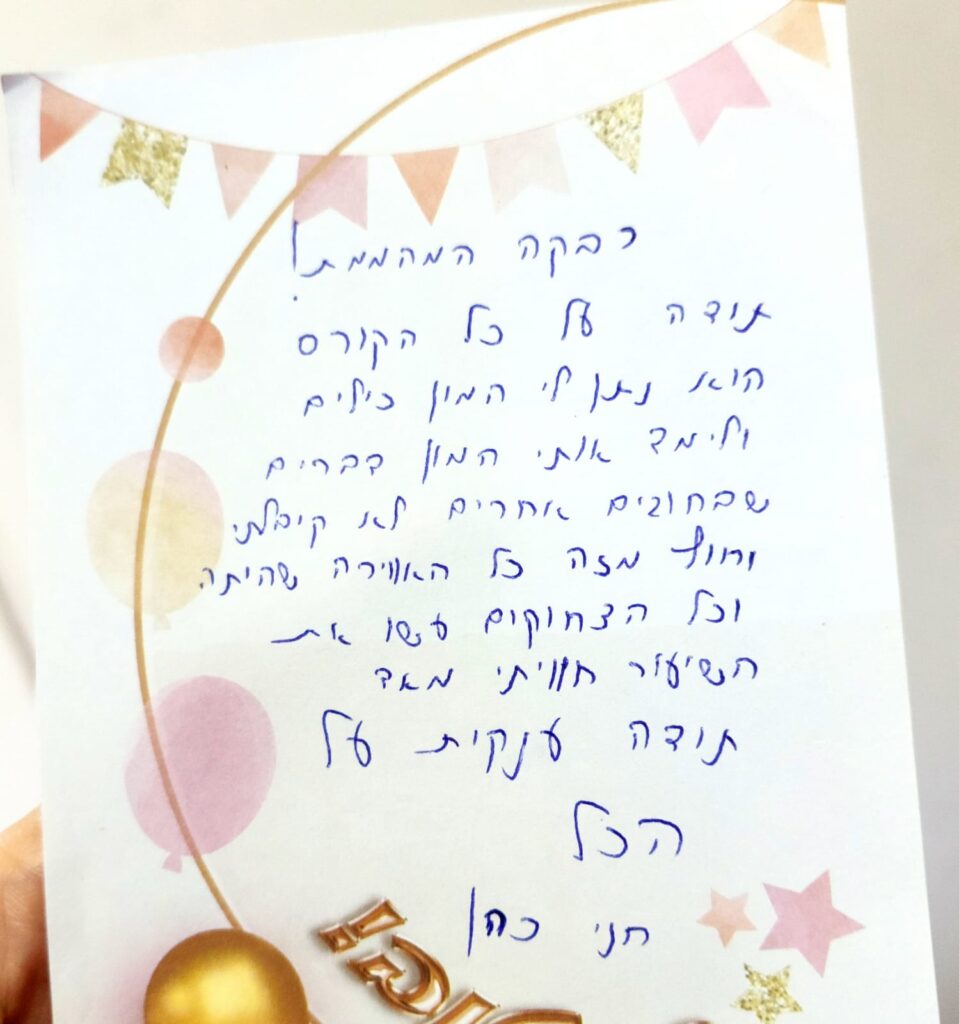 רבקה המהממת!
תודה על כל הקורס
הוא נתן לי המון כילים
ולימד אותי המון דברים
שבחוגים אחרים לא קיבלתי
וחוץ מזה כל האווירה שהיתה
וכל הצחוקים עשו את
השיעור חוויתי מאד
תודה ענקית על
הכל
חני כהן